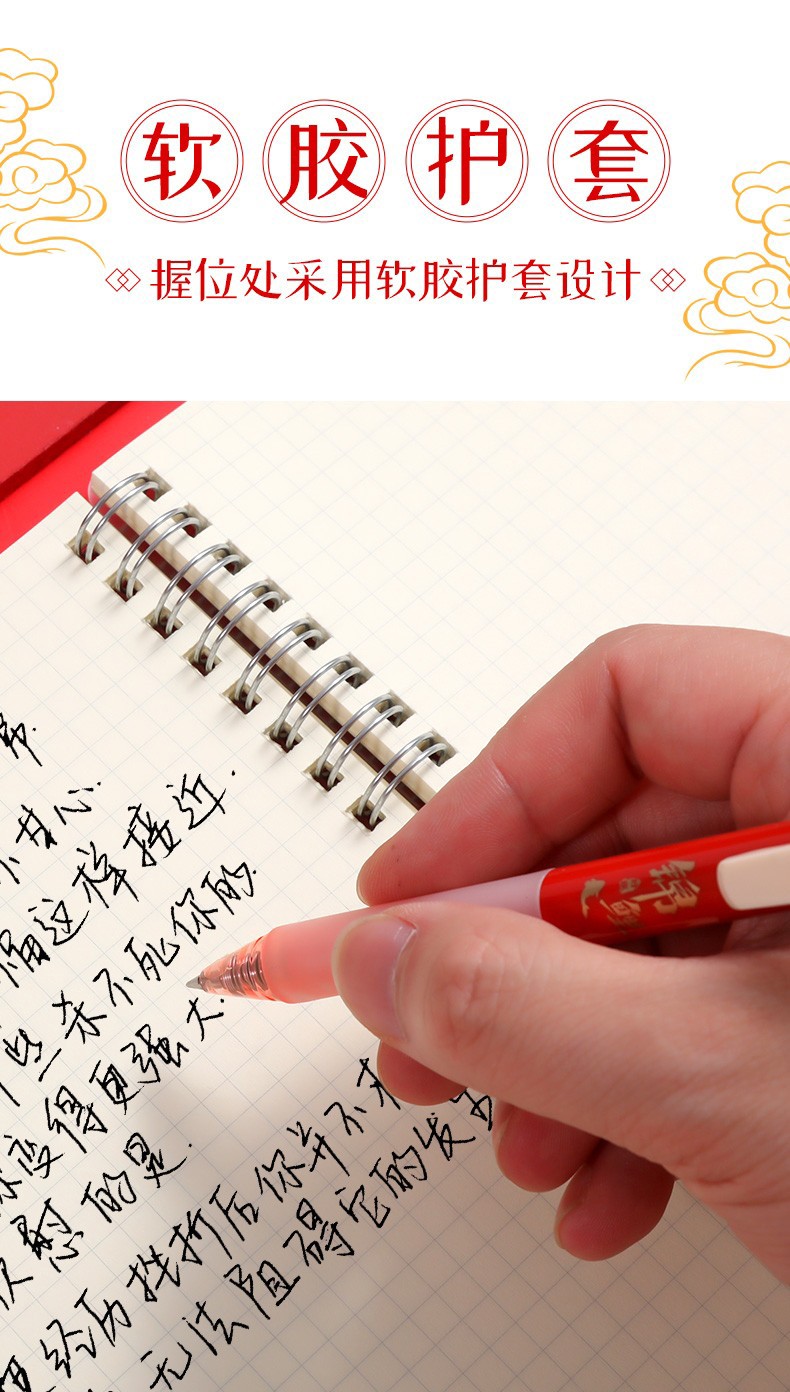 软胶护套
握位处采用软胶护套设计
这样接近.
些杀不死你的
变得更强大.
慰的是.
经历挫折后你并不
无法阻碍它的发生
锦鲤